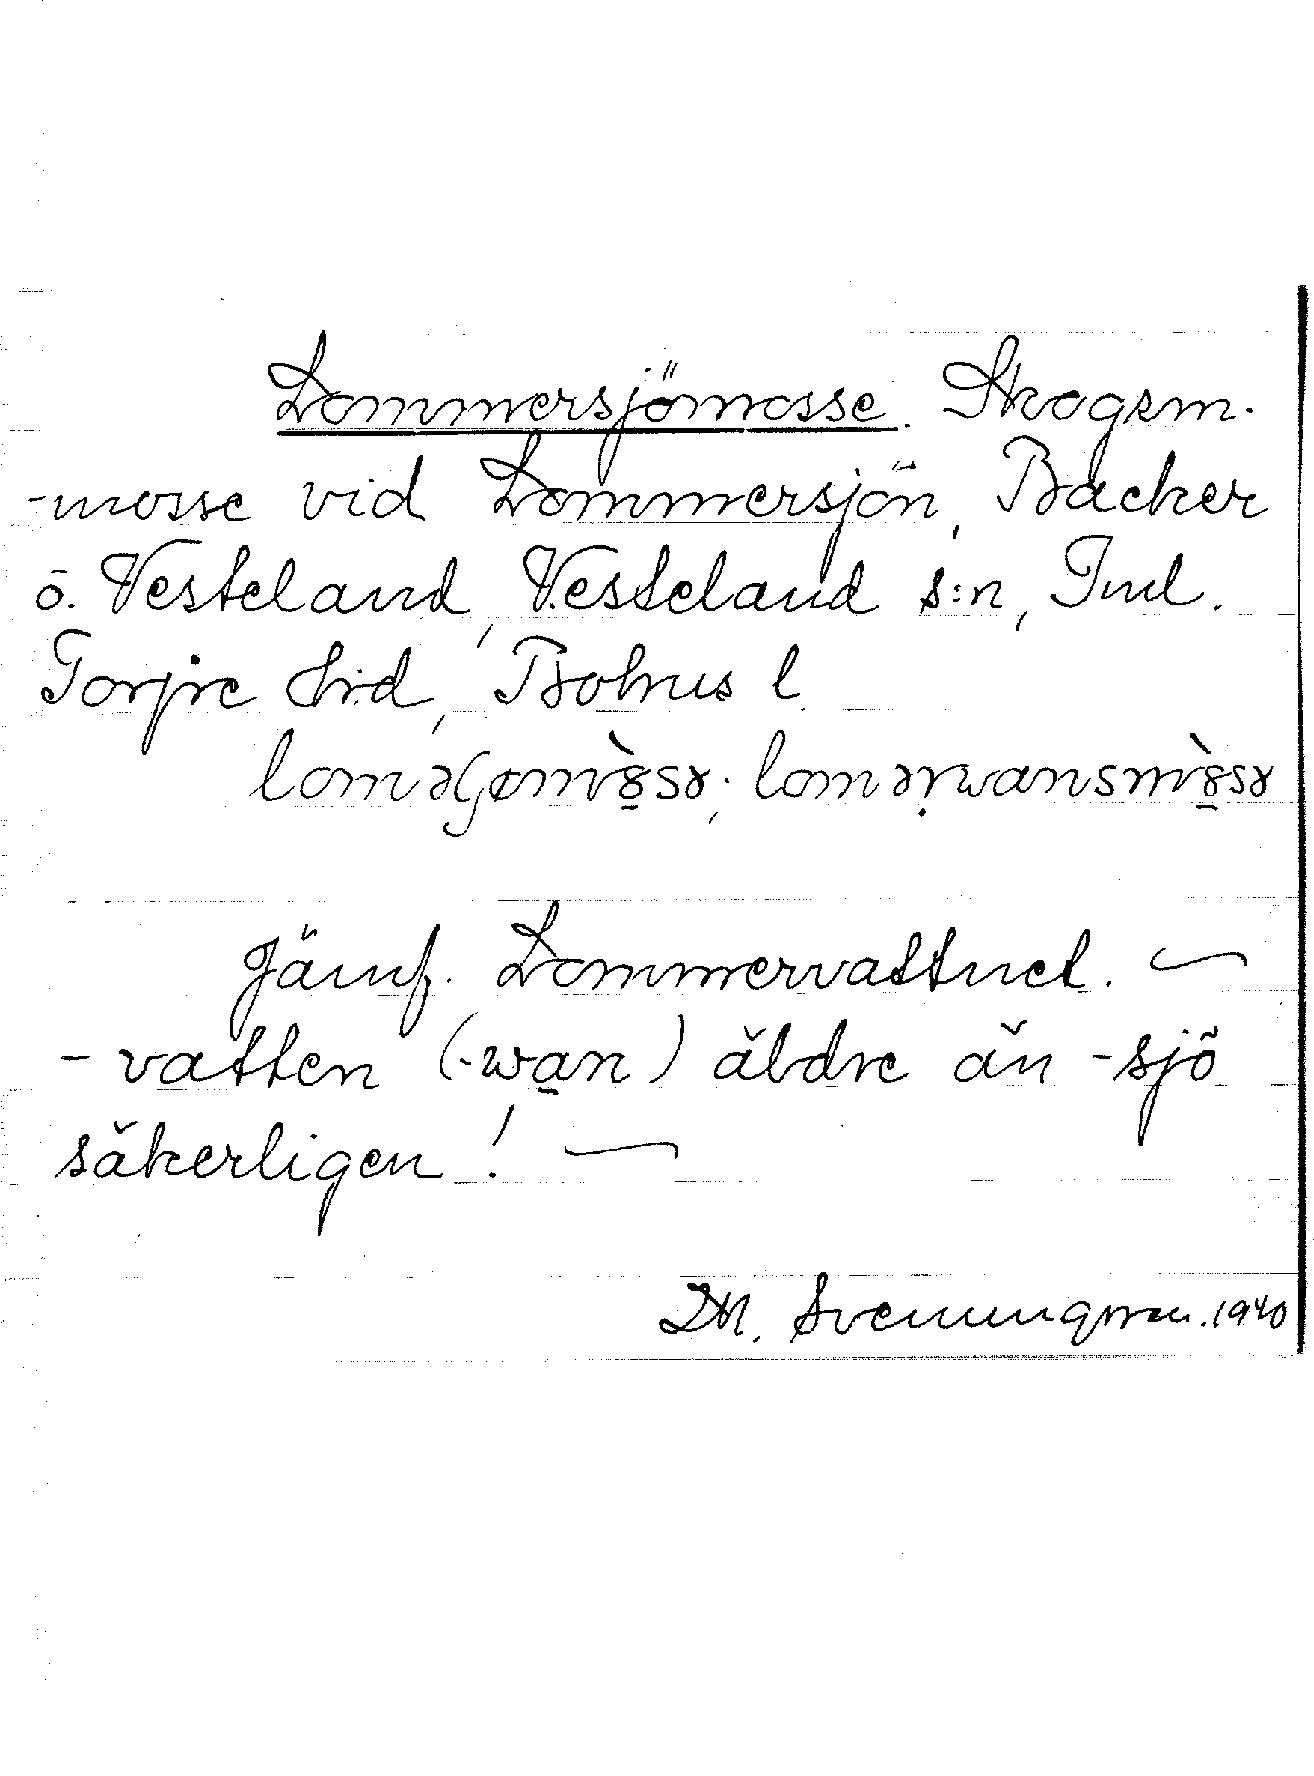 Lommersjömosse. Skogsm.
-mosse vid Lommersjön, Backer
o. Vesteland, Vesteland s:n, Inl.
Torpe hrd, Bohus l.
Jämf. Lommervattnet. —
- vatten (-wan) äldre än -sjö
säkerligen! —
D.H. Svenungsson. 1940